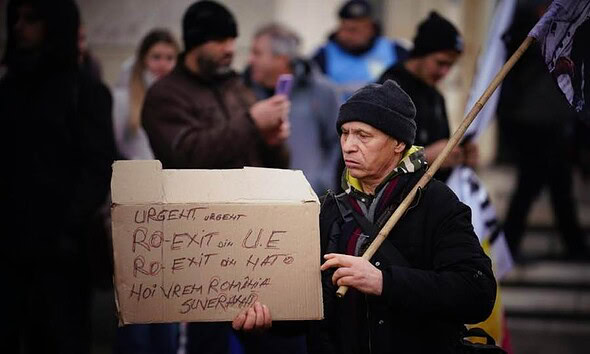 URGENT URGENT
RO-EXIT DIN U.E
RO-EXIT DIN NATO
NOI VREM ROMÂNIA
SUVERANĂ